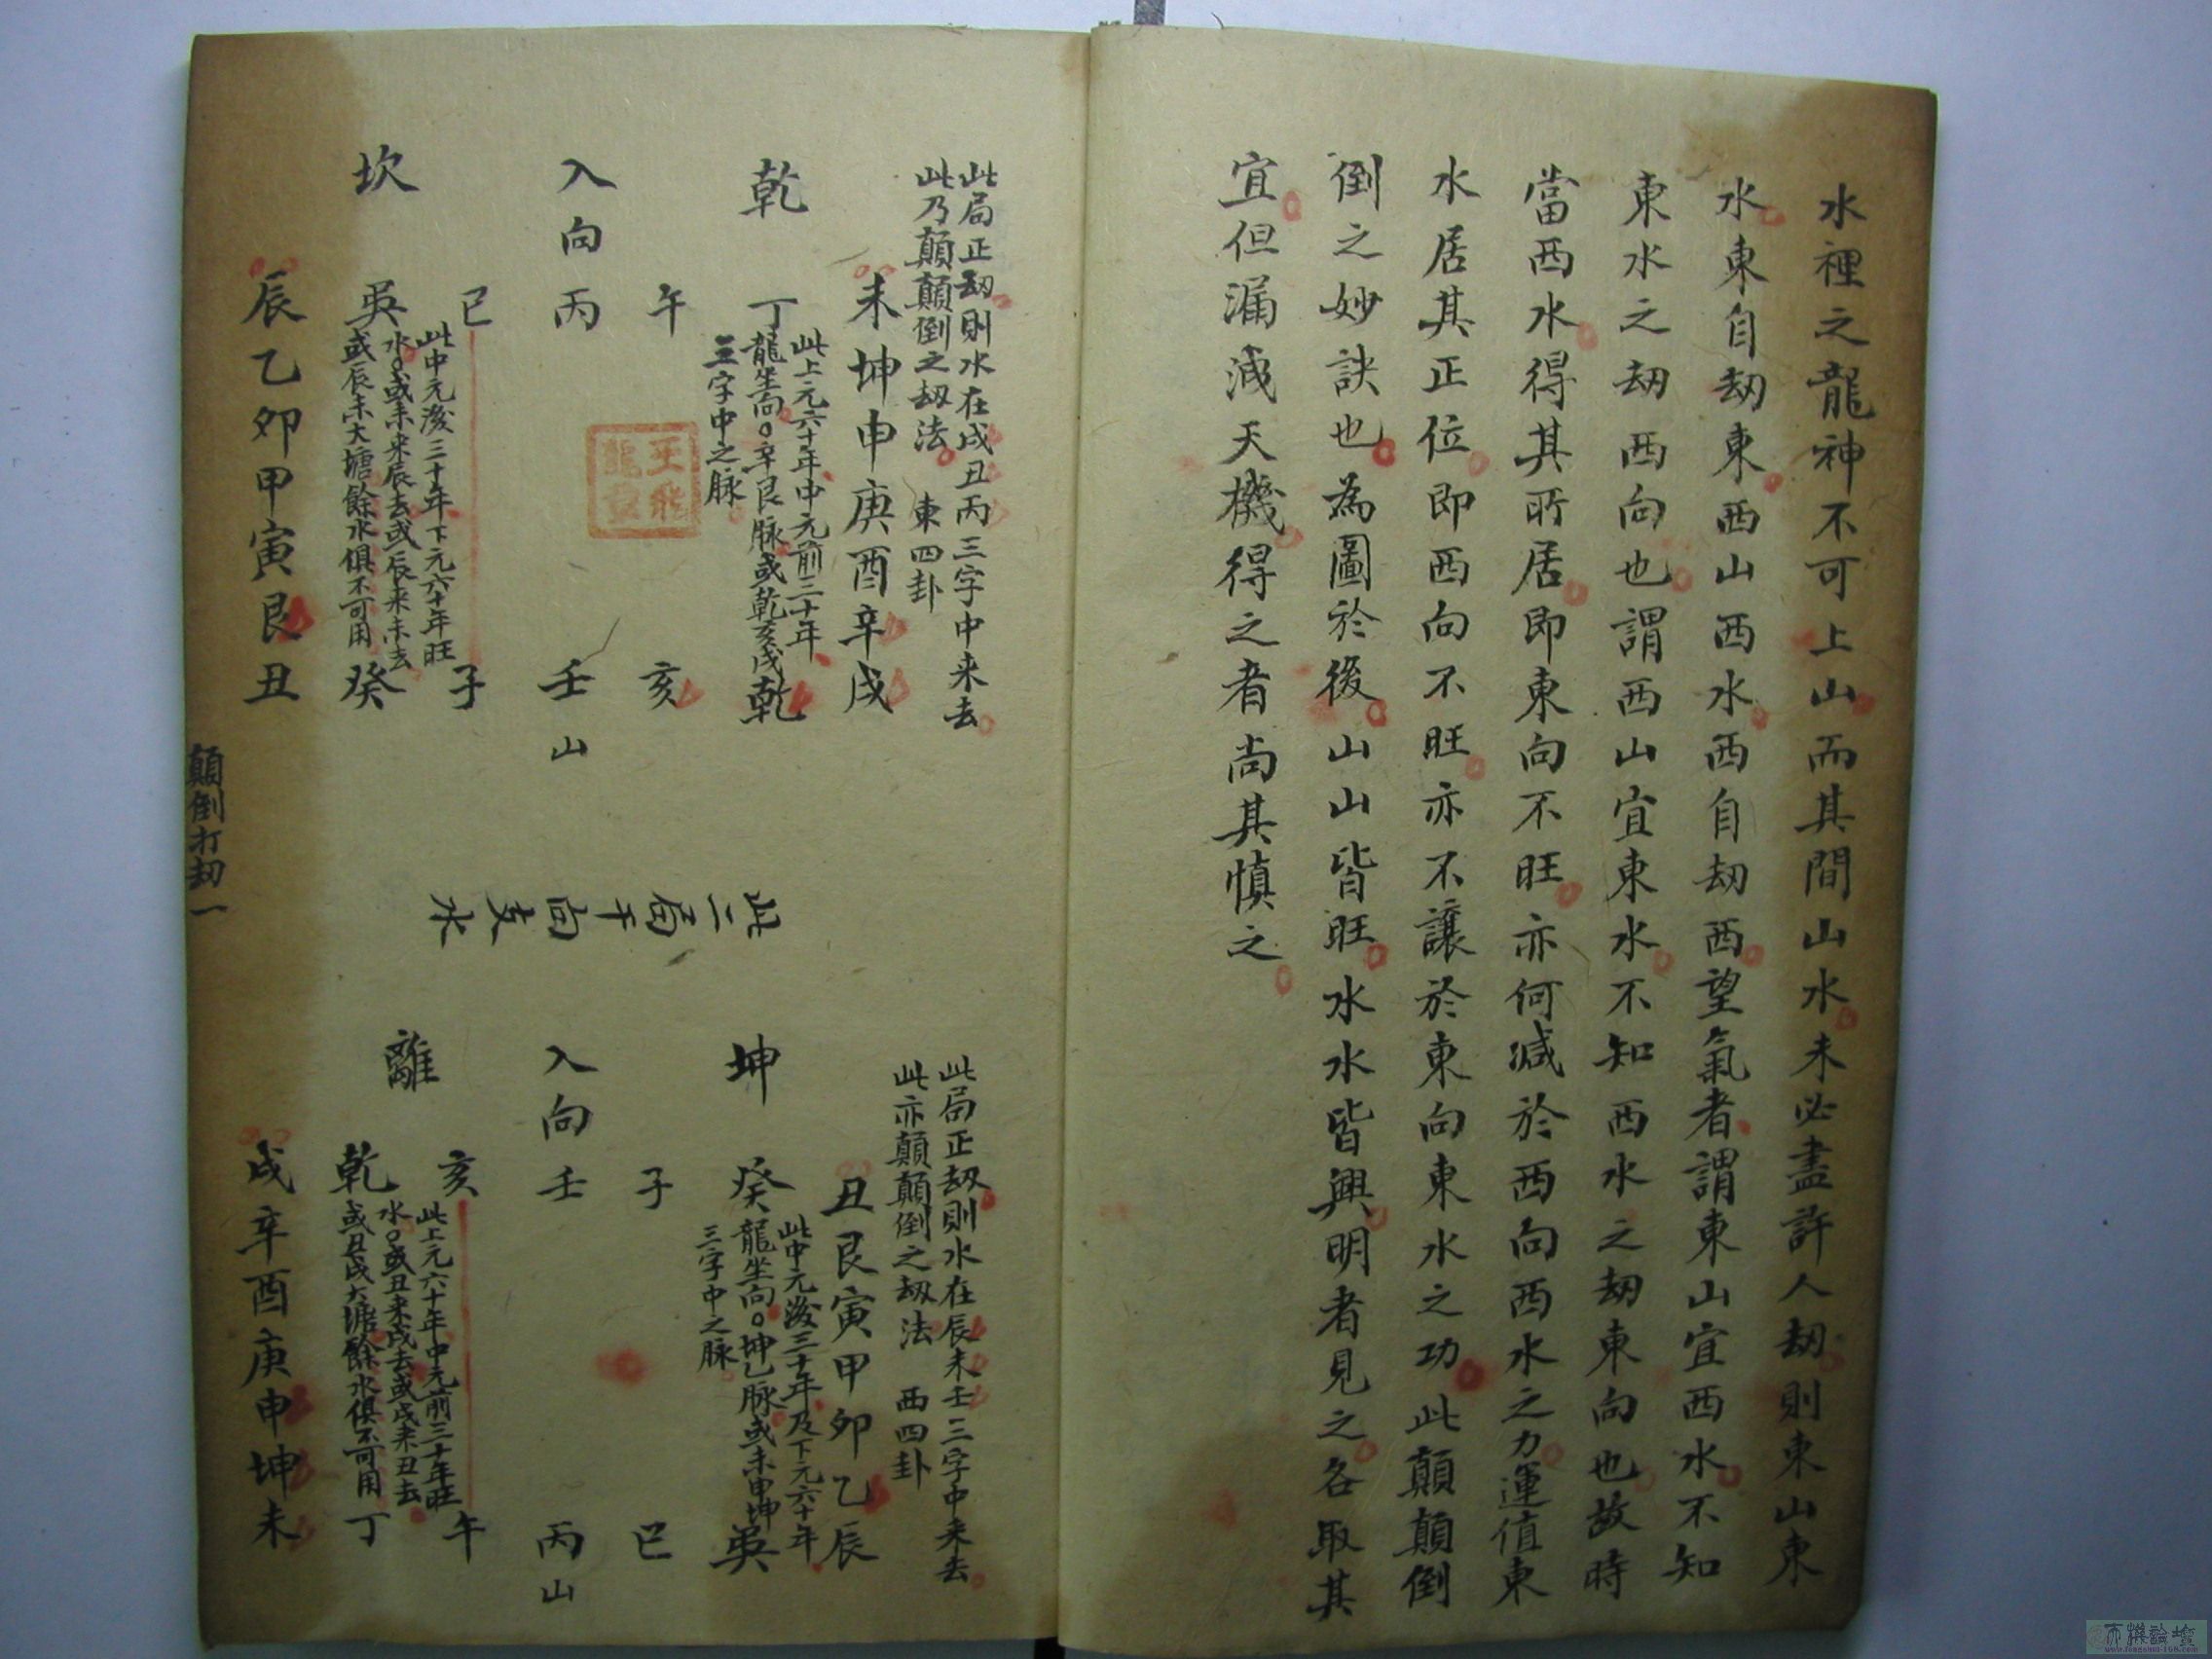 水裡之龍神不可上山而其間山水未必盡許人刼則東山東
水東自刼東西山西水西自刼西望氣者謂東山宜西水不知
東水之刼西向也謂西山宜東水不知西水之刼東向也故時
當西水得其所居即東向不旺亦何減於西向西水之力運值東
水居其正位即西向不旺亦不讓於東向東水之功此顛顛倒
倒之妙訣也為圖於後山山皆旺水水皆興明者見之各取其
宜但漏洩天機得之者尚其慎之
此局正刼則水在戌丑丙三字中来去
此乃顛顛倒之刼法 東四卦
未坤申庚酉辛戌
乾 丁 乾
此上元六十年中元前三十年
龍坐向。辛艮脉或乾亥戌
三字中之脉
午 亥
入向丙 壬山
巳 子
坎 巽 癸
此中元後三十年下元六十年旺
水。或未来辰去或辰来未去
或辰未大塘餘水俱不可用
辰乙卯甲寅艮丑
顛倒打刼一
此二局干向支水
此局正刼則水在辰未壬三字中来去
此亦顛顛倒之刼法 西四卦
丑艮寅甲卯乙辰
坤 癸 巽
此中元後三十年及下元六十年
龍坐向。坤乙脉或未申坤
三字中之脉
子 巳
入向壬 丙山
亥 午
離 乾 丁
此上元六十年中元前三十年旺
水。或丑来戌去或戌来丑去
或丑戌大塘餘水俱不可用
戌辛酉庚申坤未